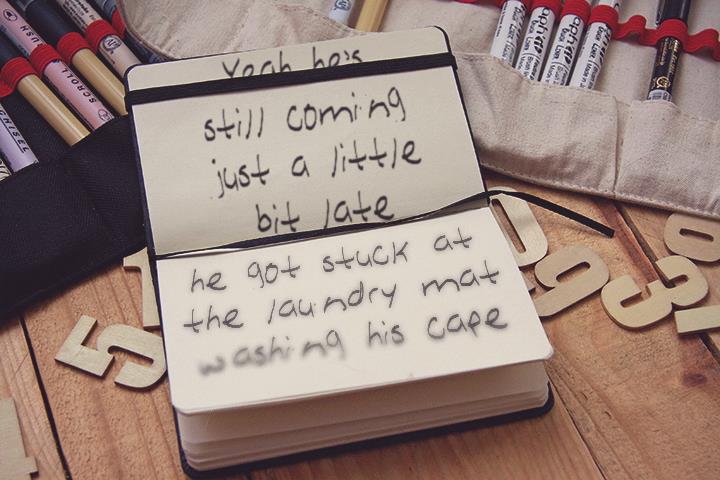 Yeah he's
still coming
just a little
bit late
he got stuck at
the laundry mat
washing his cape